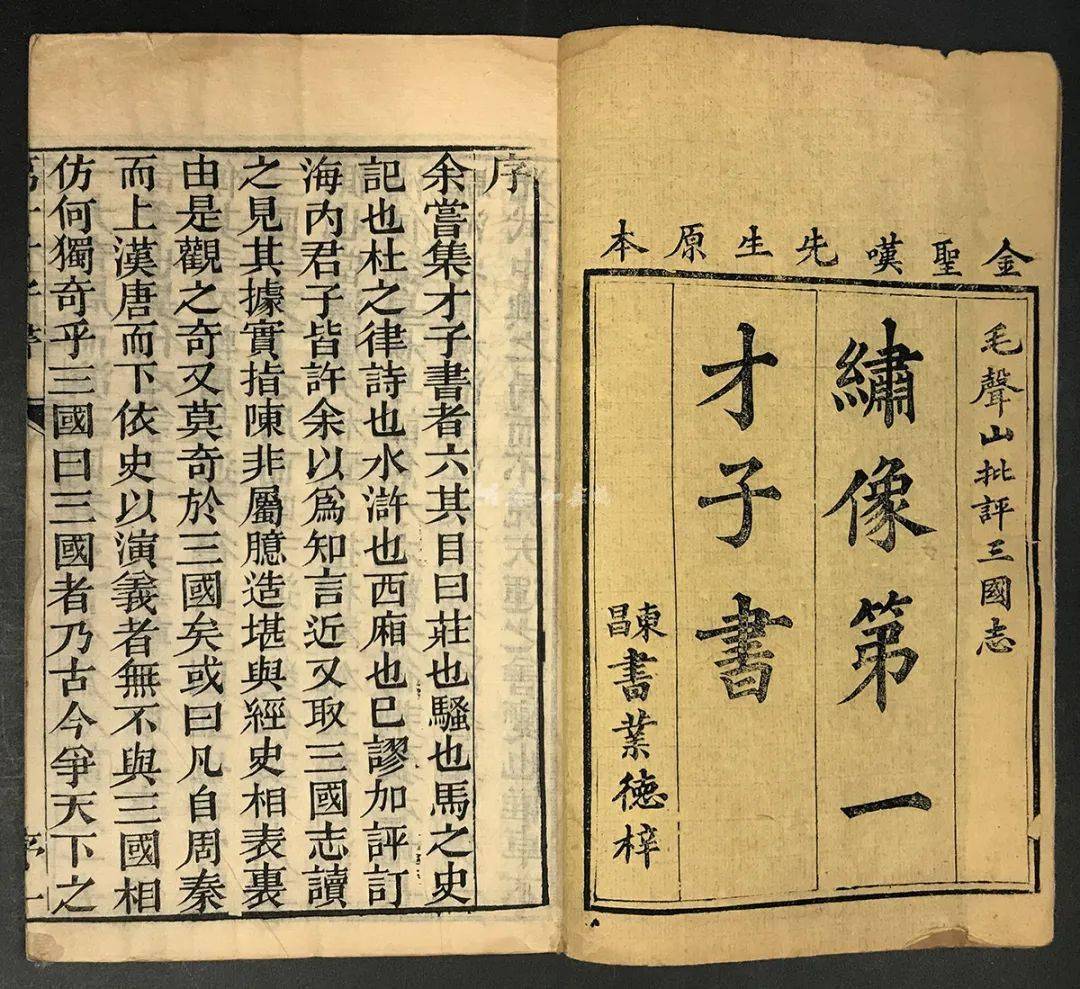 金聖嘆先生原本
毛聲山批評三國志
繡像第一
才子書
東昌
書業德梓
序
余嘗集才子書者六其目曰莊也騷也馬之史
記也杜之律詩也水滸也西廂也已謬加評訂
海內君子皆許余以爲知言近又取三國志讀
之見其據實指陳非屬臆造堪與經史相表裏
由是觀之奇又莫奇於三國矣或曰凡自周秦
而上漢唐而下依史以演義者無不與三國相
仿何獨奇乎三國曰三國者乃古今爭天下之
第一才子書
序
一